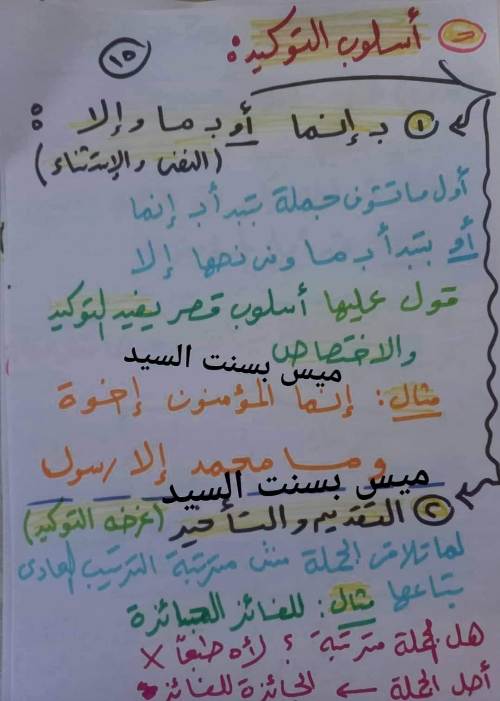 أسلوب التوكيد:
١٥
١ بـ إنما أو بـ ما و إلا :
(النفى والإستثناء)
أول ما تشوف جملة بتبدأ بـ إنما
أو بتبدأ بـ ما وفى نصها إلا
قول عليها أسلوب قصر يفيد التوكيد
والاختصاص
ميس بسنت السيد
مثال: إنما المؤمنون إخوة
وما محمد إلا رسول
ميس بسنت السيد
٢ التقديم والتأخير (غرضه التوكيد)
لما تلاقى الجملة مش مترتبة الترتيب العادى
بتاعها مثال: للفائز الجائزة
هل الجملة مترتبة ؟ لأه طبعاً X
أصل الجملة ← الجائزة للفائز